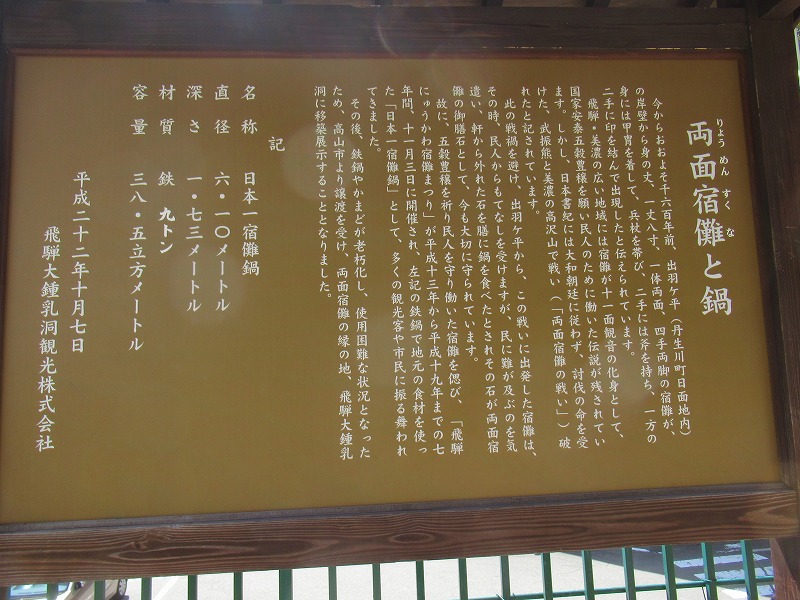 りょう めん すく な
両面宿儺と鍋
今からおおよそ千六百年前、出羽ケ平(丹生川町日面地内)
の岸壁から身の丈、一丈八寸、一体両面、四手両脚の宿儺が、
身には甲冑を着して、兵杖を帯び、二手には斧を持ち、一方の
二手に印を結んで出現したと伝えられています。
飛騨・美濃の広い地域には宿儺が十一面観音の化身として、
国家安泰五穀豊穣を願い民人のために働いた伝説が残されてい
ます。しかし、日本書紀には大和朝廷に従わず、討伐の命を受
けた、武振熊と美濃の高沢山で戦い(「両面宿儺の戦い」)破
れたと記されています。
此の戦禍を避け、出羽ケ平から、この戦いに出発した宿儺は、
その時、民人からもてなしを受けますが、民に難が及ぶのを気
遣い、軒から外れた石を膳に鍋を食べたとされその石が両面宿
儺の御膳石として、今も大切に守られています。
故に、五穀豊穣を祈り民人を守り働いた宿儺を偲び、「飛騨
にゅうかわ宿儺まつり」が平成十三年から平成十九年までの七
年間、十一月三日に開催され、左記の鉄鍋で地元の食材を使っ
た「日本一宿儺鍋」として、多くの観光客や市民に振る舞われ
てきました。
その後、鉄鍋やかまどが老朽化し、使用困難な状況となった
ため、高山市より譲渡を受け、両面宿儺の縁の地、飛騨大鍾乳
洞に移築展示することとなりました。
記
名 称 日本一宿儺鍋
直 径 六・一〇メートル
深 さ 一・七三メートル
材 質 鉄 九トン
容 量 三八・五立方メートル
平成二十二年十月七日
飛騨大鍾乳洞観光株式会社